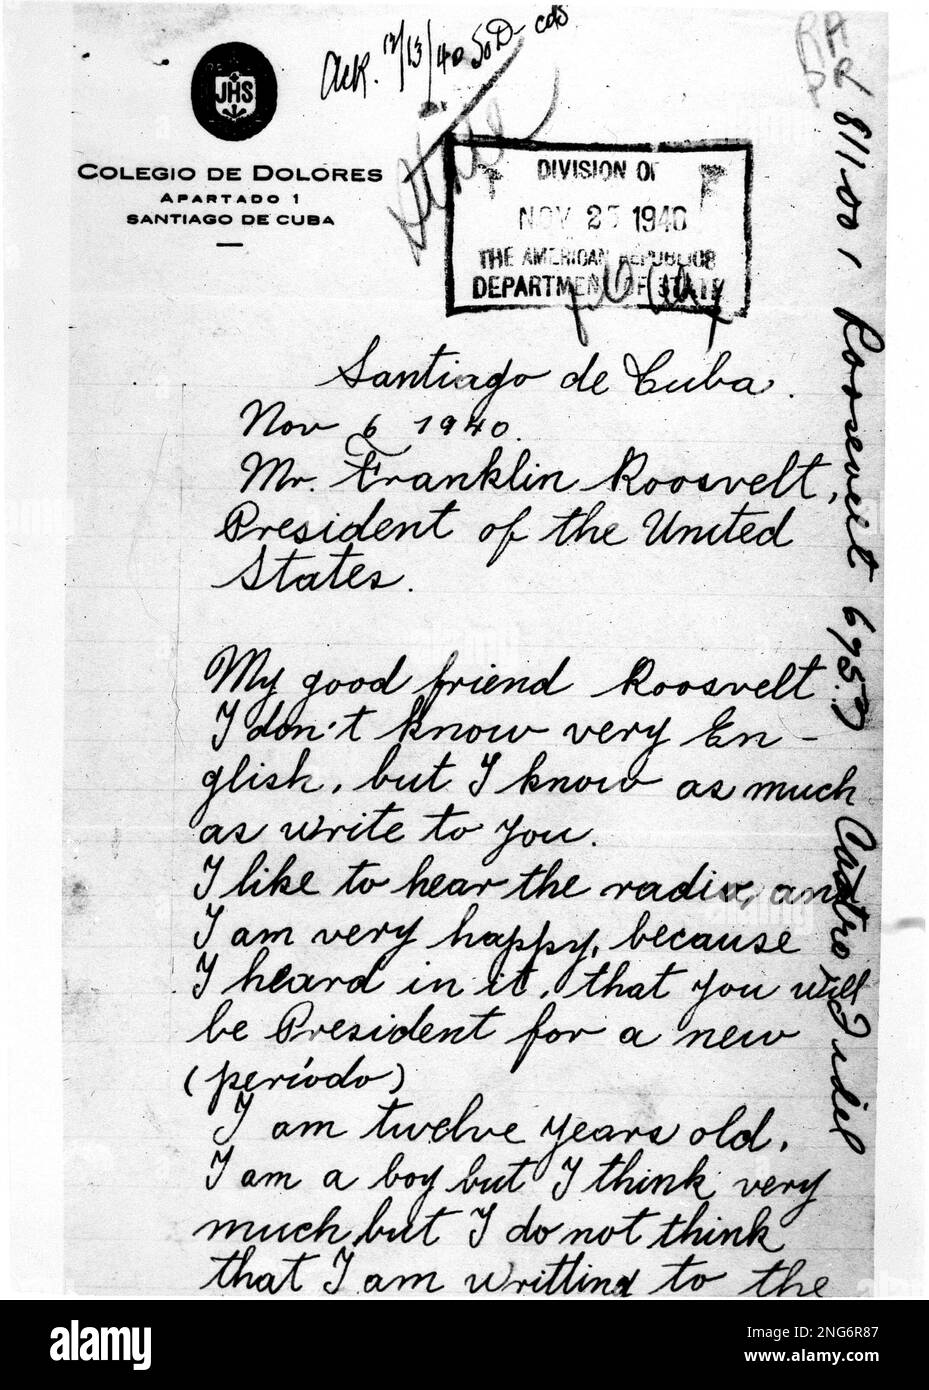 Ack. 12/13/40 SoD- cds
JHS
COLEGIO DE DOLORES
APARTADO 1
SANTIAGO DE CUBA
DIVISION OF
NOV 25 1940
THE AMERICAN REPUBLICS
DEPARTMENT OF STATE
Santiago de Cuba.
Nov 6 1940.
Mr. Franklin Roosvelt,
President of the United
States.
My good friend Roosvelt
I don't know very En-
glish, but I know as much
as write to you.
I like to hear the radio, and
I am very happy, because
I heard in it, that you will
be President for a new
(período)
I am twelve years old.
I am a boy but I think very
much but I do not think
that I am writting to the
811.001 Roosevelt 695.7 Castro, Fidel
RA
PR
alamy
Image ID: 2NG6R87
www.alamy.com